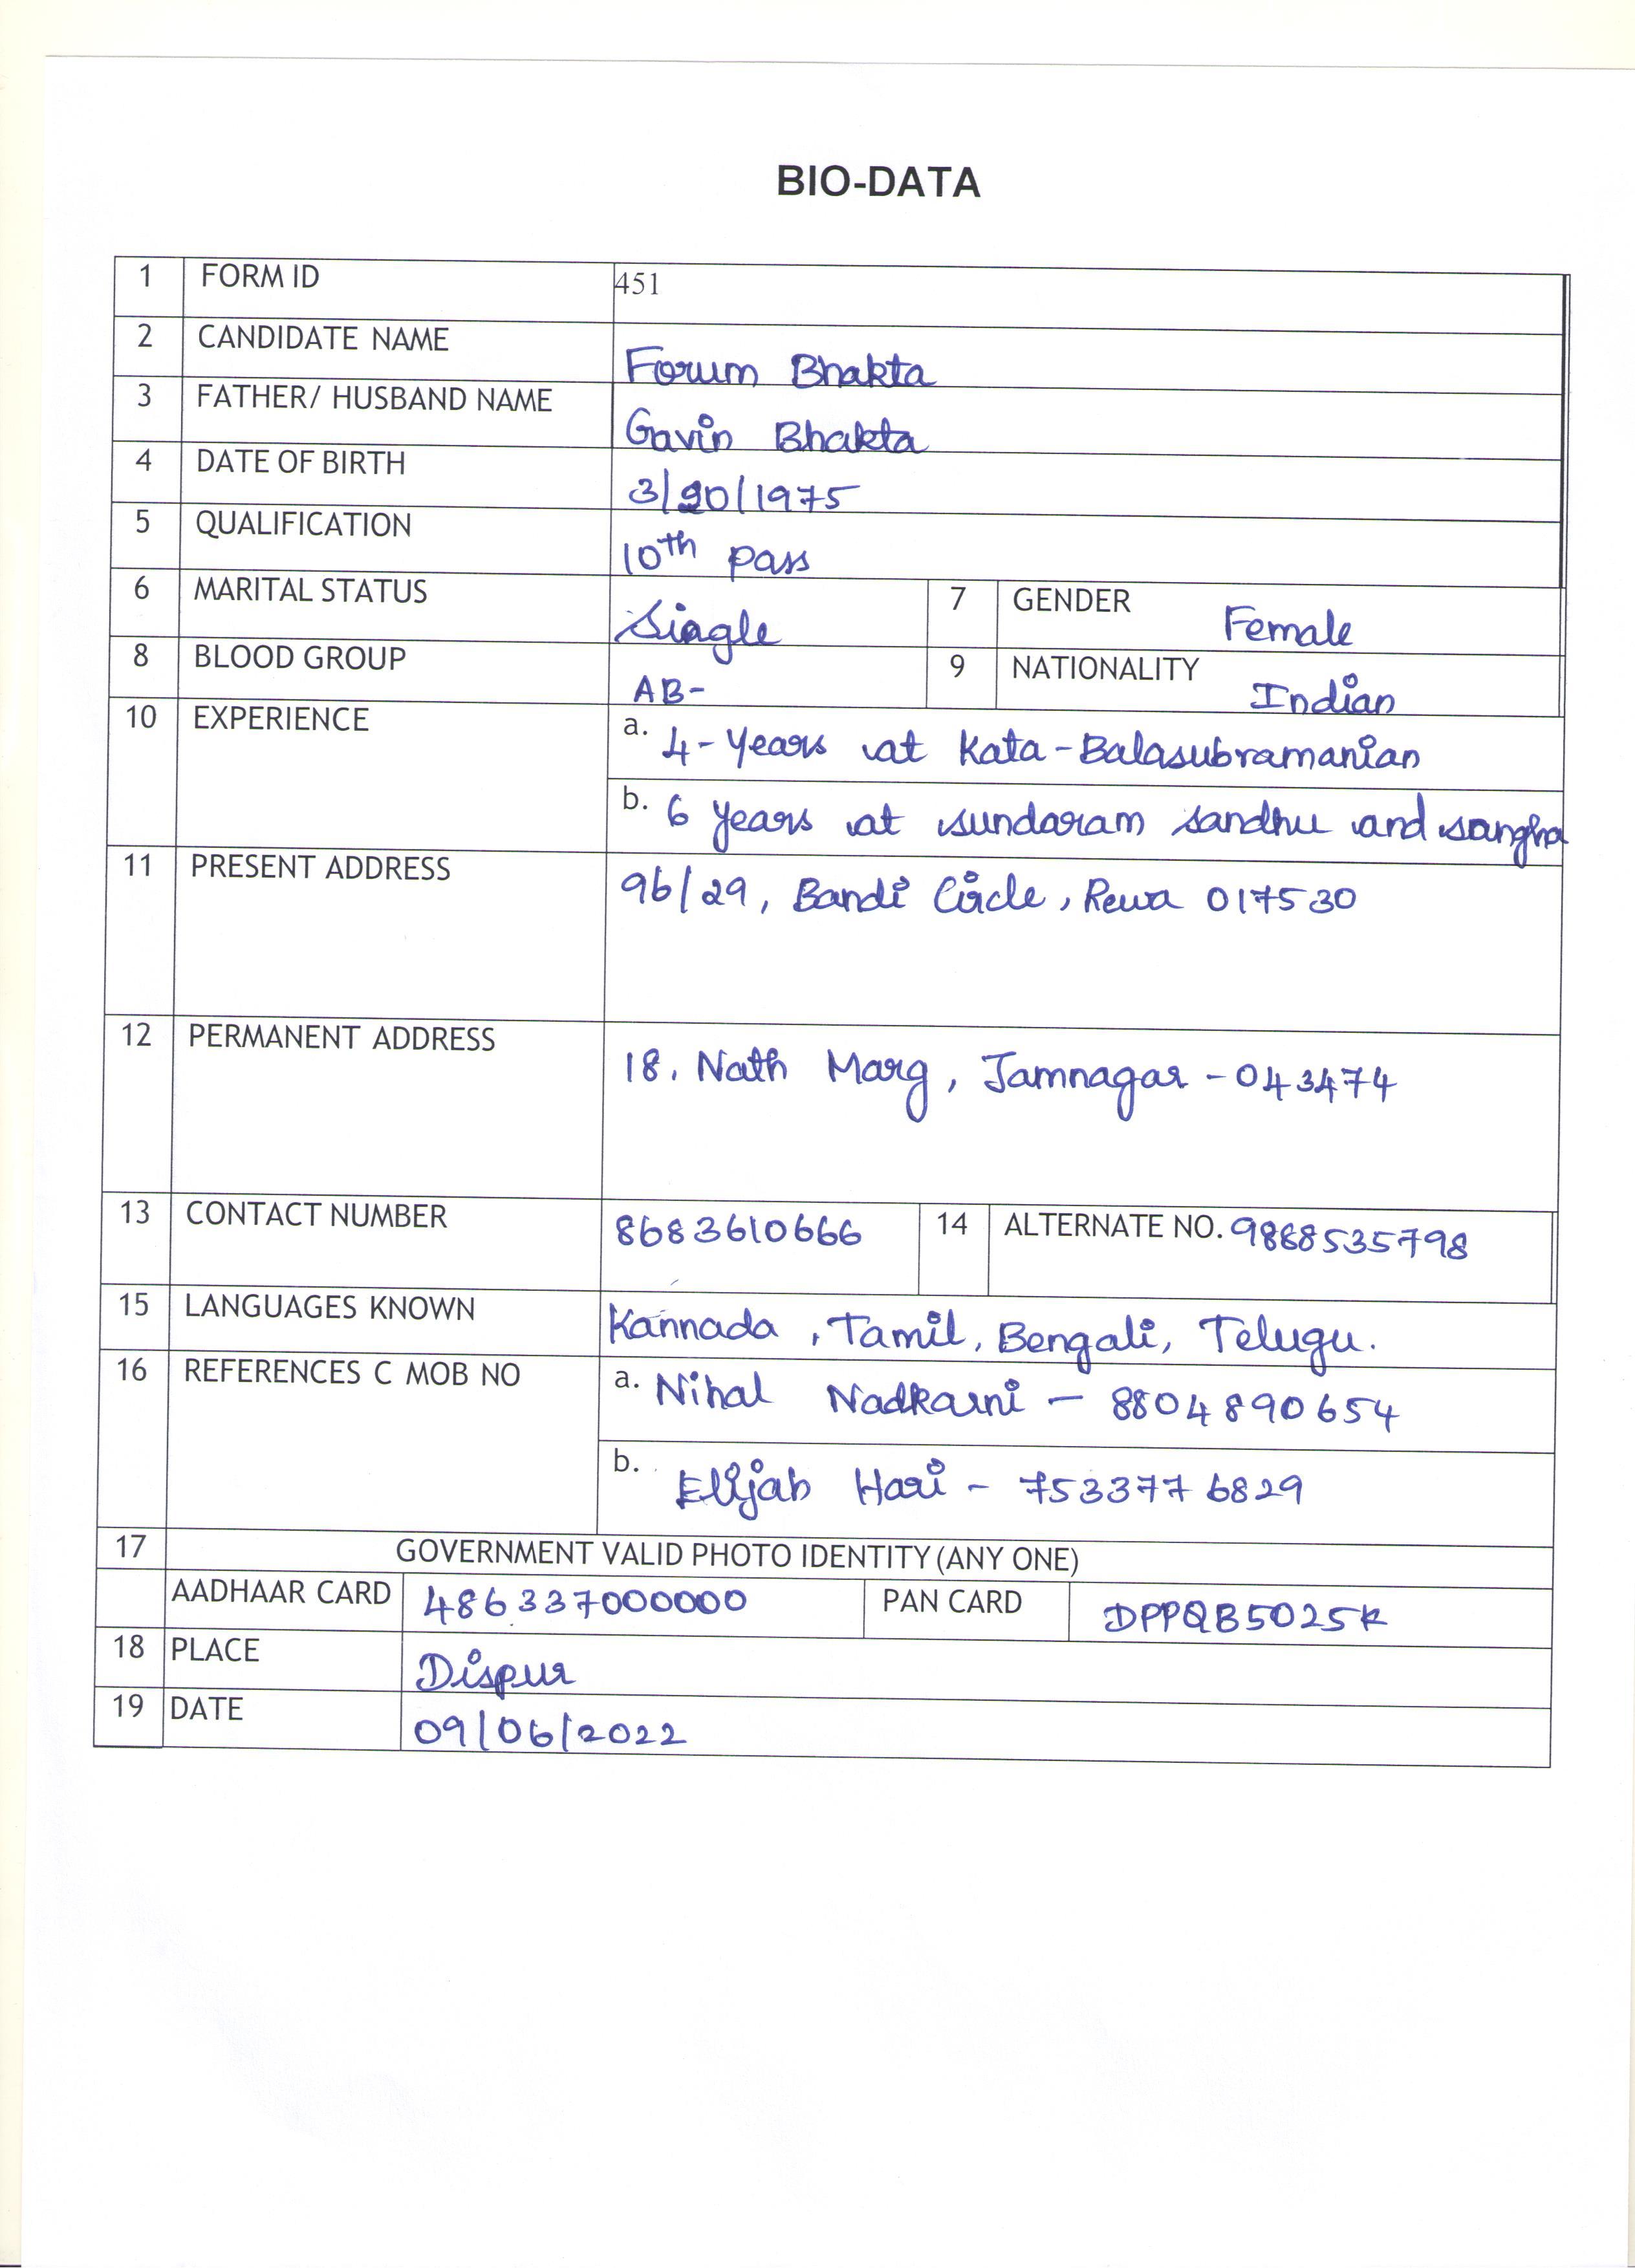 BIO-DATA
1 FORM ID 451
2 CANDIDATE NAME Forum Bhakta
3 FATHER/ HUSBAND NAME Gavin Bhakta
4 DATE OF BIRTH 3/20/1975
5 QUALIFICATION 10th pass
6 MARITAL STATUS Single 7 GENDER Female
8 BLOOD GROUP AB- 9 NATIONALITY Indian
10 EXPERIENCE a. 4-Years at Kata-Balasubramanian
b. 6 years at sundaram sandhu and sangha
11 PRESENT ADDRESS 96/29, Bandi Circle, Rewa 017530
12 PERMANENT ADDRESS 18, Nath Marg, Jamnagar - 043474
13 CONTACT NUMBER 8683610666 14 ALTERNATE NO. 9888535798
15 LANGUAGES KNOWN Kannada, Tamil, Bengali, Telugu.
16 REFERENCES C MOB NO a. Nihal Nadkarni - 8804890654
b. Elijah Hari - 7533776829
17 GOVERNMENT VALID PHOTO IDENTITY (ANY ONE)
AADHAAR CARD 486337000000 PAN CARD DPPQB5025K
18 PLACE Dispur
19 DATE 09/06/2022